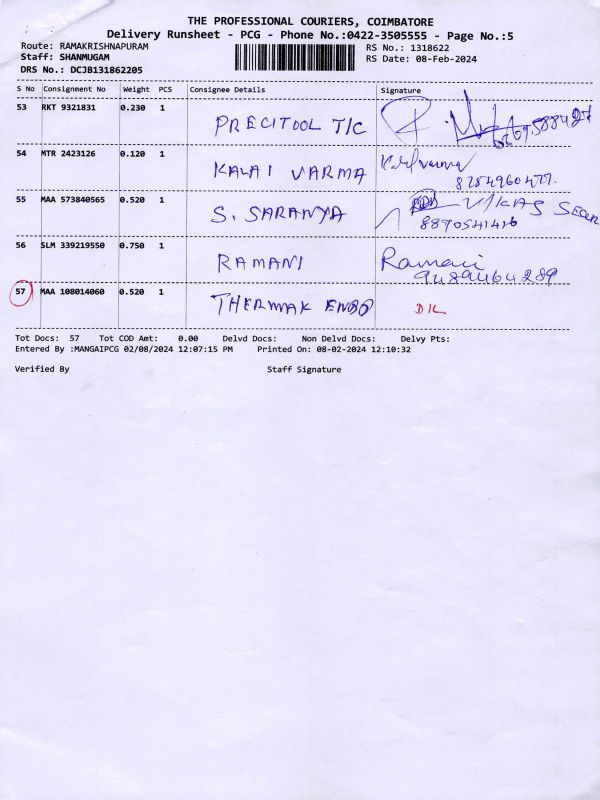 THE PROFESSIONAL COURIERS, COIMBATORE
Delivery Runsheet - PCG - Phone No.:0422-3505555 - Page No.:5
Route: RAMAKRISHNAPURAM RS No.: 1318622
Staff: SHANMUGAM RS Date: 08-Feb-2024
DRS No.: DCJB131862205
S No Consignment No Weight PCS Consignee Details Signature
53 RKT 9321831 0.230 1 PRECITOOL T/C
54 MTR 2423126 0.120 1 KALAI VARMA
8754960477.
55 MAA 573840565 0.520 1 S. SARANYA VIKAS
8890541416
56 SLM 339219550 0.750 1 RAMANI Ramani
9489464289
57 MAA 108014060 0.520 1 THERMAK D/L
Tot Docs: 57 Tot COD Amt: 0.00 Delvd Docs: Non Delvd Docs: Delvy Pts:
Entered By :MANGAIPCG 02/08/2024 12:07:15 PM Printed On: 08-02-2024 12:10:32
Verified By Staff Signature